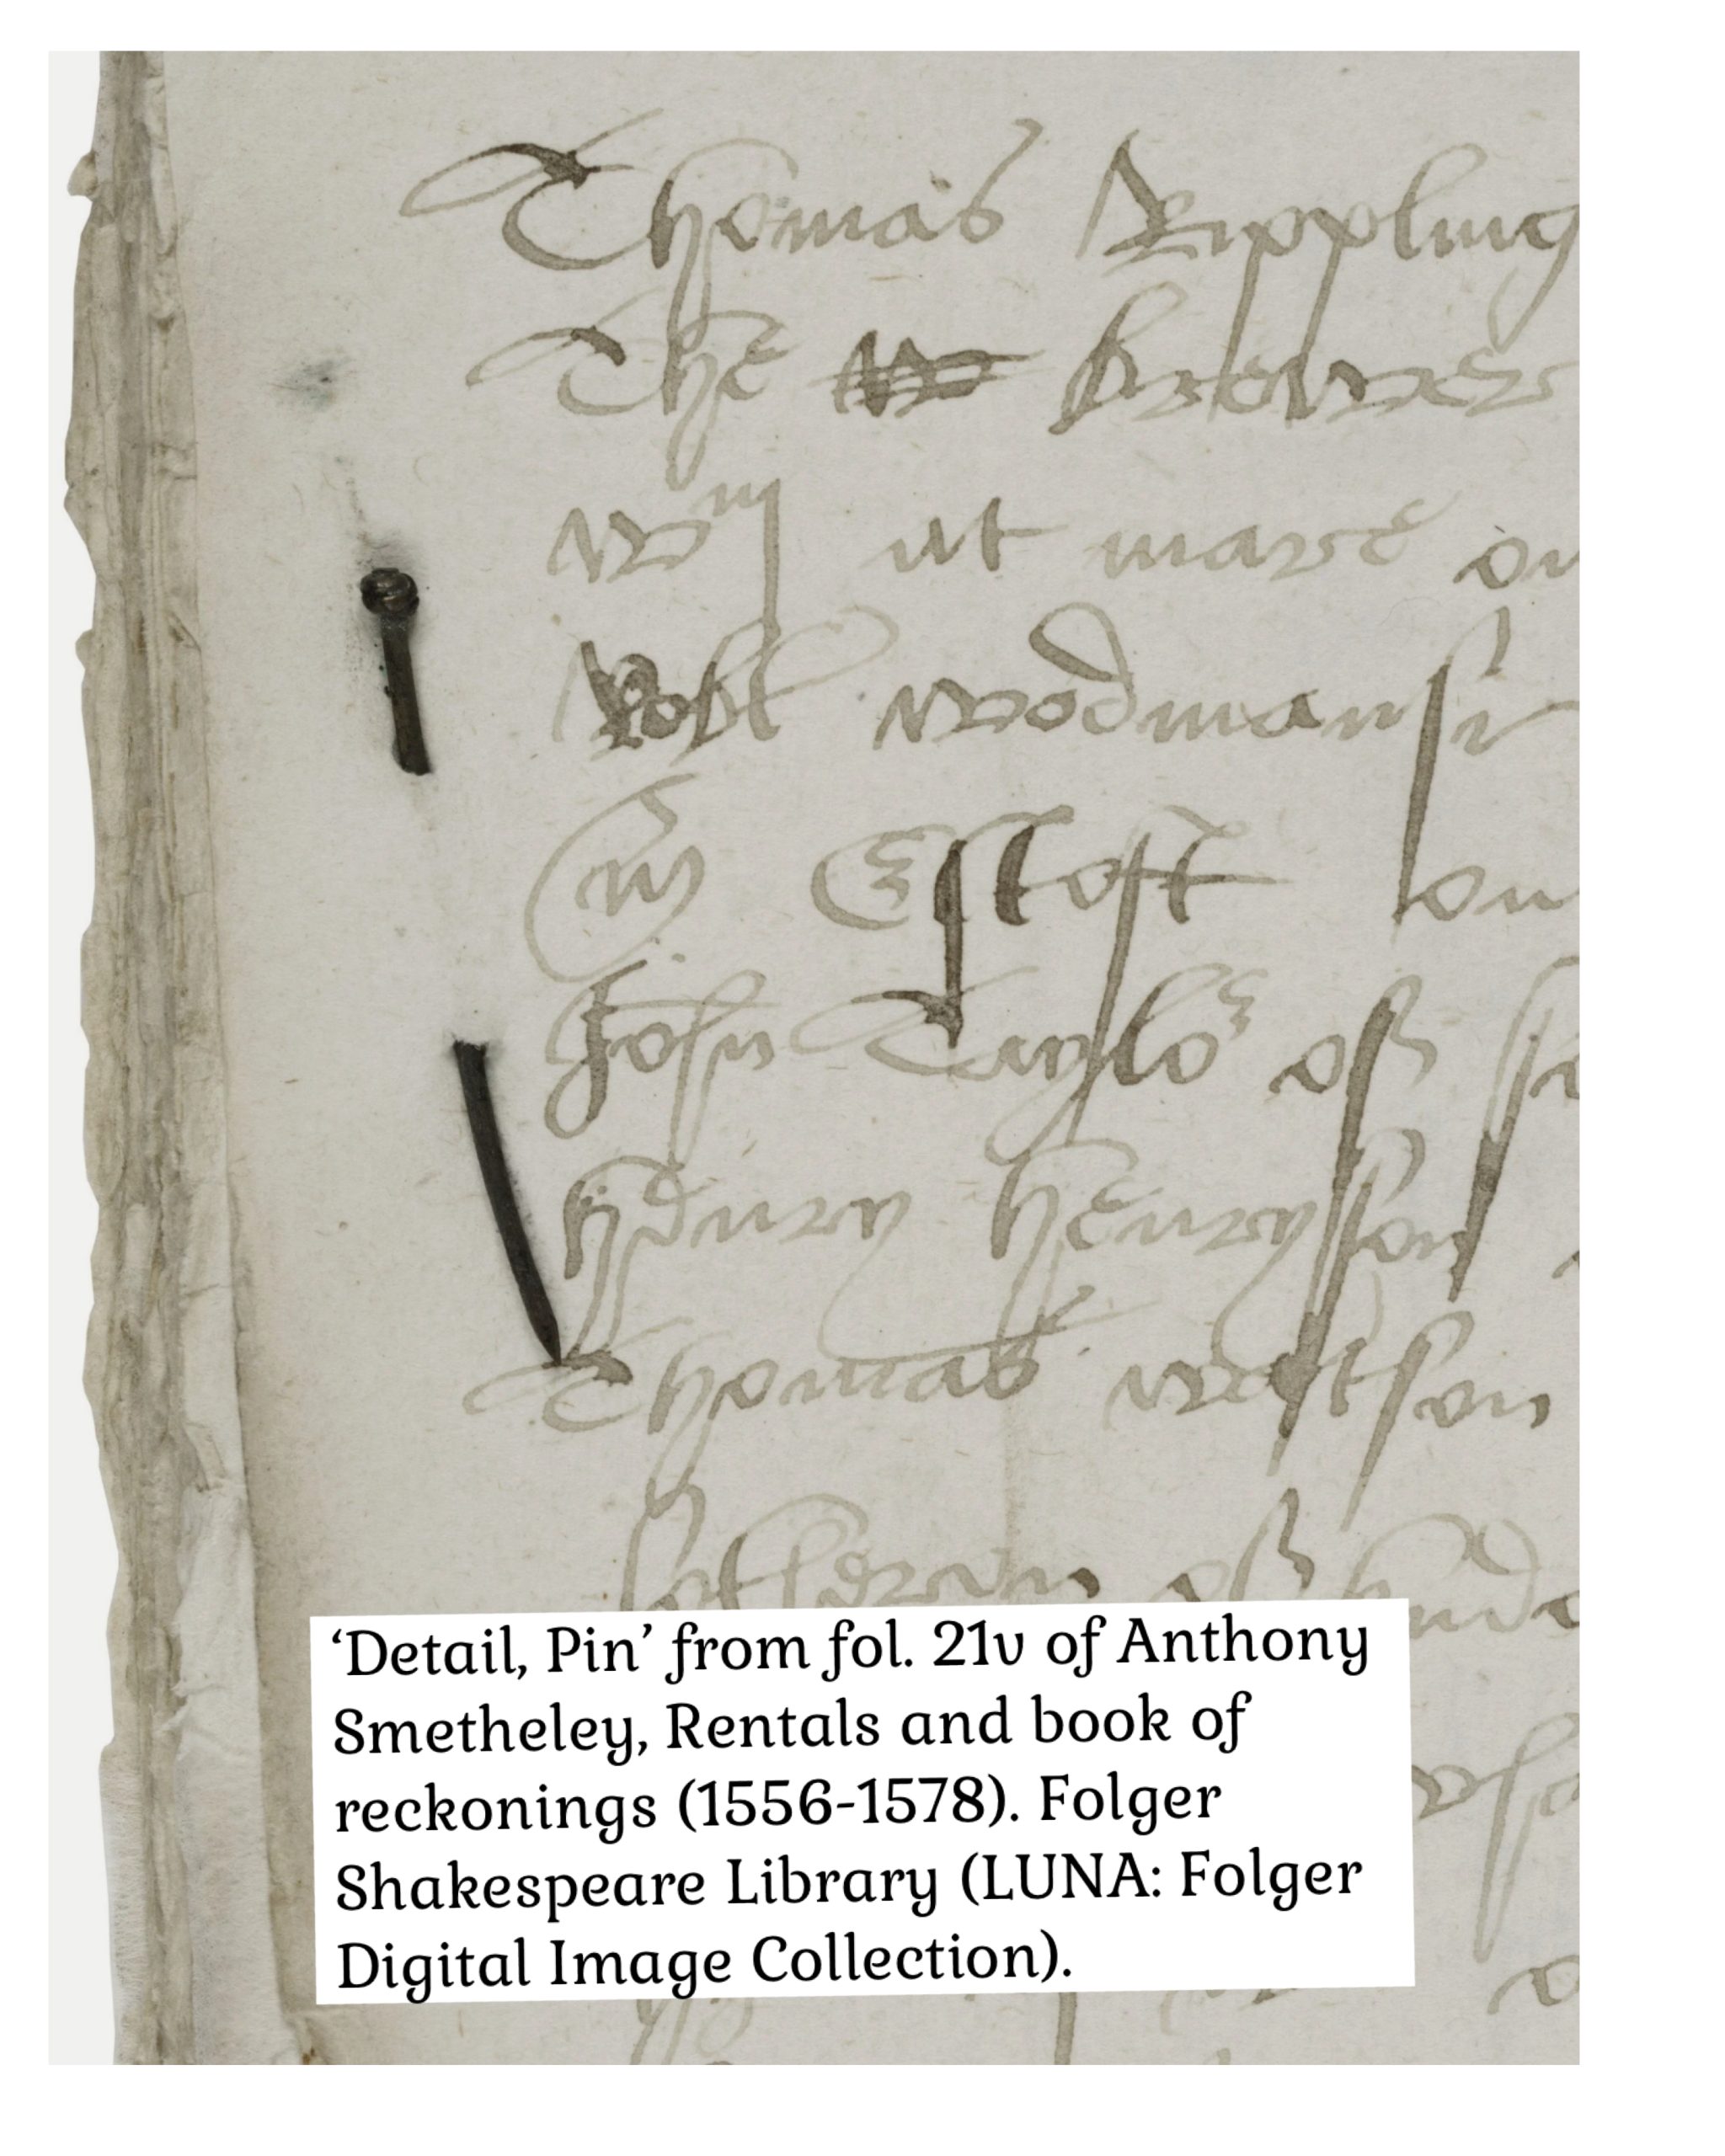 Thomas Rippling
The brower
at mare on
Robt wodmansi
Estoft on
John Taylor of
Henry Henryson
Thomas watson
of
‘Detail, Pin’ from fol. 21v of Anthony
Smetheley, Rentals and book of
reckonings (1556-1578). Folger
Shakespeare Library (LUNA: Folger
Digital Image Collection).